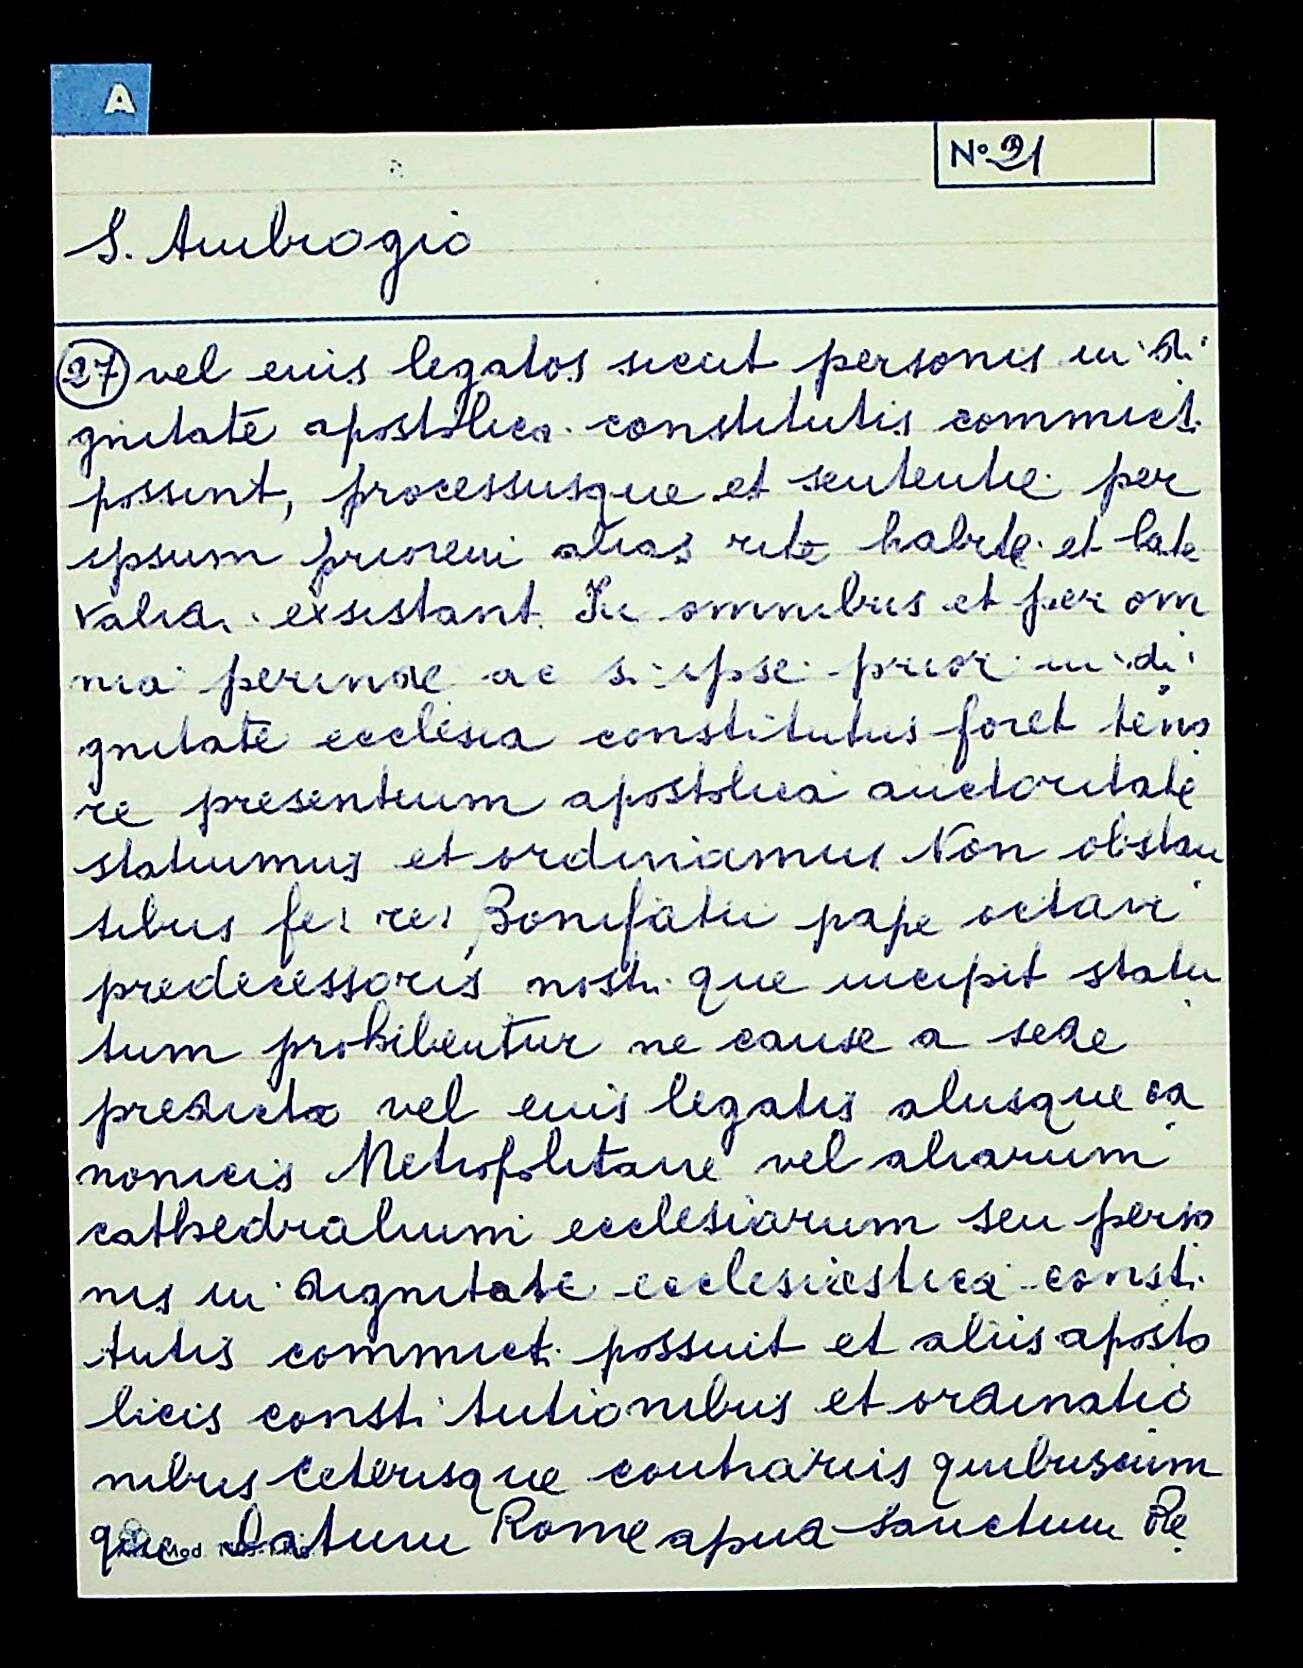 A
N° 21
S. Ambrogio
27 vel euis legatos sicut personis in di
gnitate apostolica constitutis commicti
possint, processusque et sententie per
ipsum priorem alias rite habite et late
valida exsistant. In omnibus et per om
nia perinde ac si ipse prior in di
gnitate ecclesia constitutus foret teno
re presentium apostolica auctoritate
statuimus et ordinamus Non obstan
tibus fe: re: Bonifatii pape octavi
predecessoris nostri que incipit statu
tum prohibentur ne cause a sede
predicta vel euis legatis aliisque ca
nonicis Metropolitane vel aliarum
cathedralium ecclesiarum seu perso
nis in dignitate ecclesiastica consti
tutis commicti possuit et aliis aposto
licis constitutionibus et ordinatio
nibus ceterisque contrariis quibuscum
que Datum Rome apud sanctum Pe
Mod